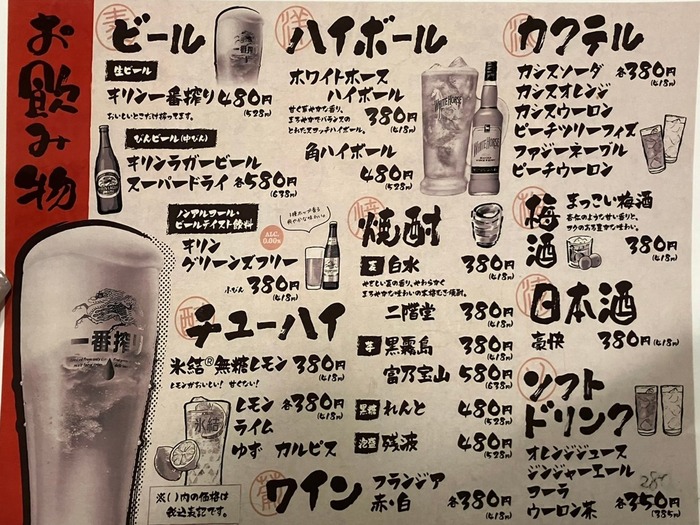 お飲み物
ビール
生ビール
キリン一番搾り 480円
(528円)
おいしいとこだけ搾ってます。
びんビール(中びん)
キリンラガービール
スーパードライ 各580円
(638円)
ノンアルコール・
ビールテイスト飲料
ALC.
0.00%
キリン
グリーンズフリー
小びん 380円
(418円)
チューハイ
氷結®無糖レモン 380円
(418円)
レモンがおいしい! 甘くない!
レモン 各380円
(418円)
ライム
ゆず カルピス
氷結
※( )内の価格は
税込表記です。
一番搾り
ハイボール
ホワイトホース
ハイボール
380円
(418円)
甘く華やかな香り、
まろやかでバランスの
とれたスコッチハイボール。
角ハイボール
480円
(528円)
WHITE HORSE
焼酎
麦 白水 380円
(418円)
やさしい麦の香り、やわらかく
まろやかな味わいの本格むぎ焼酎。
二階堂 380円
(418円)
芋 黒霧島 380円
(418円)
富乃宝山 580円
(638円)
黒糖 れんと 480円
(528円)
泡盛 残波 480円
(528円)
ワイン
フランジア
赤・白 各380円
(418円)
カクテル
カシスソーダ 各380円
(418円)
カシスオレンジ
カシスウーロン
ピーチツリーフィズ
ファジーネーブル
ピーチウーロン
梅酒
まっこい梅酒
杏仁のような甘い香りと、
コクのある豊かな味わい。
380円
(418円)
日本酒
豪快 380円
(418円)
ソフト
ドリンク
オレンジジュース
ジンジャーエール
コーラ
ウーロン茶 各350円
(385円)